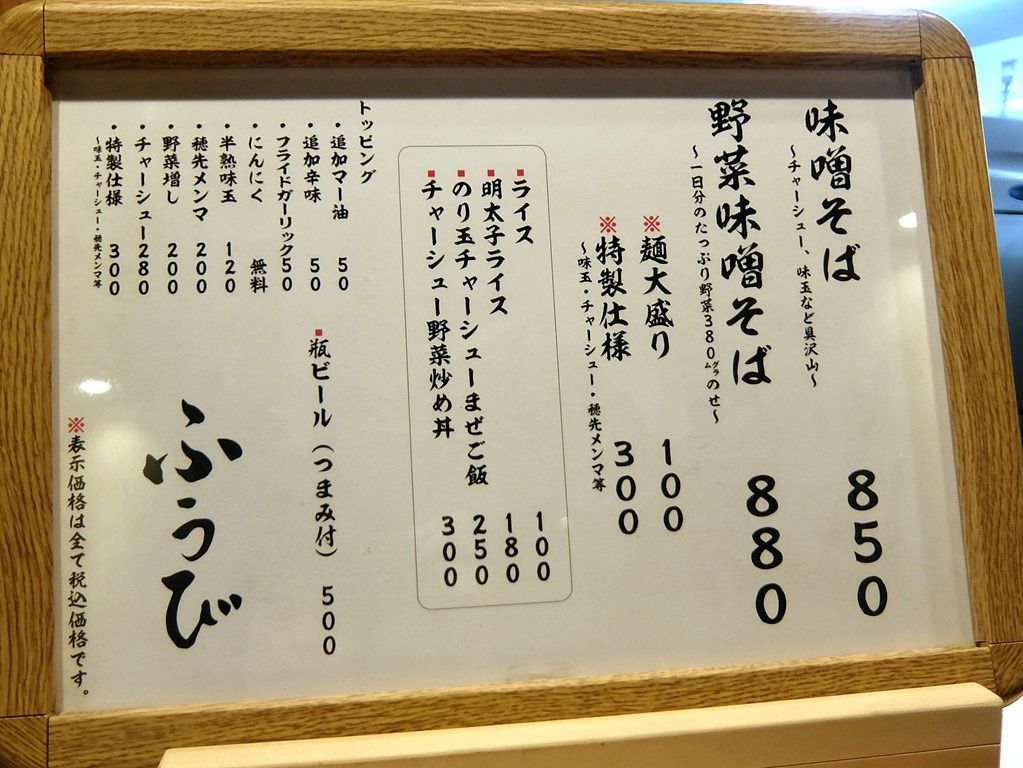 味噌そば 850
～チャーシュー、味玉など具沢山～
野菜味噌そば 880
～一日分のたっぷり野菜380グラムのせ～
※麺大盛り 100
※特製仕様 300
～味玉・チャーシュー・穂先メンマ等
■ライス 100
■明太子ライス 180
■のり玉チャーシューまぜご飯 250
■チャーシュー野菜炒め丼 300
トッピング
・追加マー油 50
・追加辛味 50
・フライドガーリック50
・にんにく 無料
・半熟味玉 120
・穂先メンマ 200
・野菜増し 200
・チャーシュー280
・特製仕様 300
～味玉・チャーシュー・穂先メンマ等
■瓶ビール（つまみ付） 500
ふうび
※表示価格は全て税込価格です。